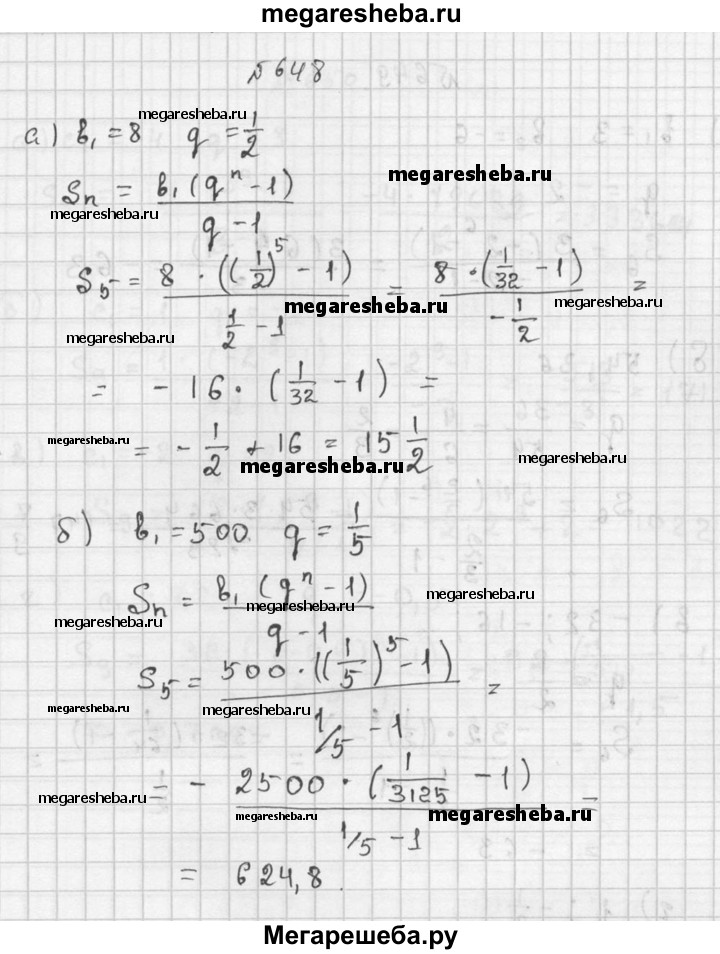 megaresheba.ru
№648
megaresheba.ru
а) b₁ = 8   q = 1/2
megaresheba.ru
Sₙ = b₁(qⁿ - 1) / (q - 1)
megaresheba.ru
S₅ = 8 · ((1/2)⁵ - 1) / (1/2 - 1) = 8 · (1/32 - 1) / (-1/2) =
megaresheba.ru
megaresheba.ru
megaresheba.ru
= - 16 · (1/32 - 1) =
megaresheba.ru
= - 1/2 + 16 = 15 1/2
megaresheba.ru
megaresheba.ru
б) b₁ = 500   q = 1/5
Sₙ = b₁(qⁿ - 1) / (q - 1)
megaresheba.ru
megaresheba.ru
megaresheba.ru
S₅ = 500 · ((1/5)⁵ - 1) / (1/5 - 1) =
megaresheba.ru
megaresheba.ru
= - 2500 · (1/3125 - 1) / (1/5 - 1) =
megaresheba.ru
megaresheba.ru
megaresheba.ru
= 624,8.
Мегарешеба.ру